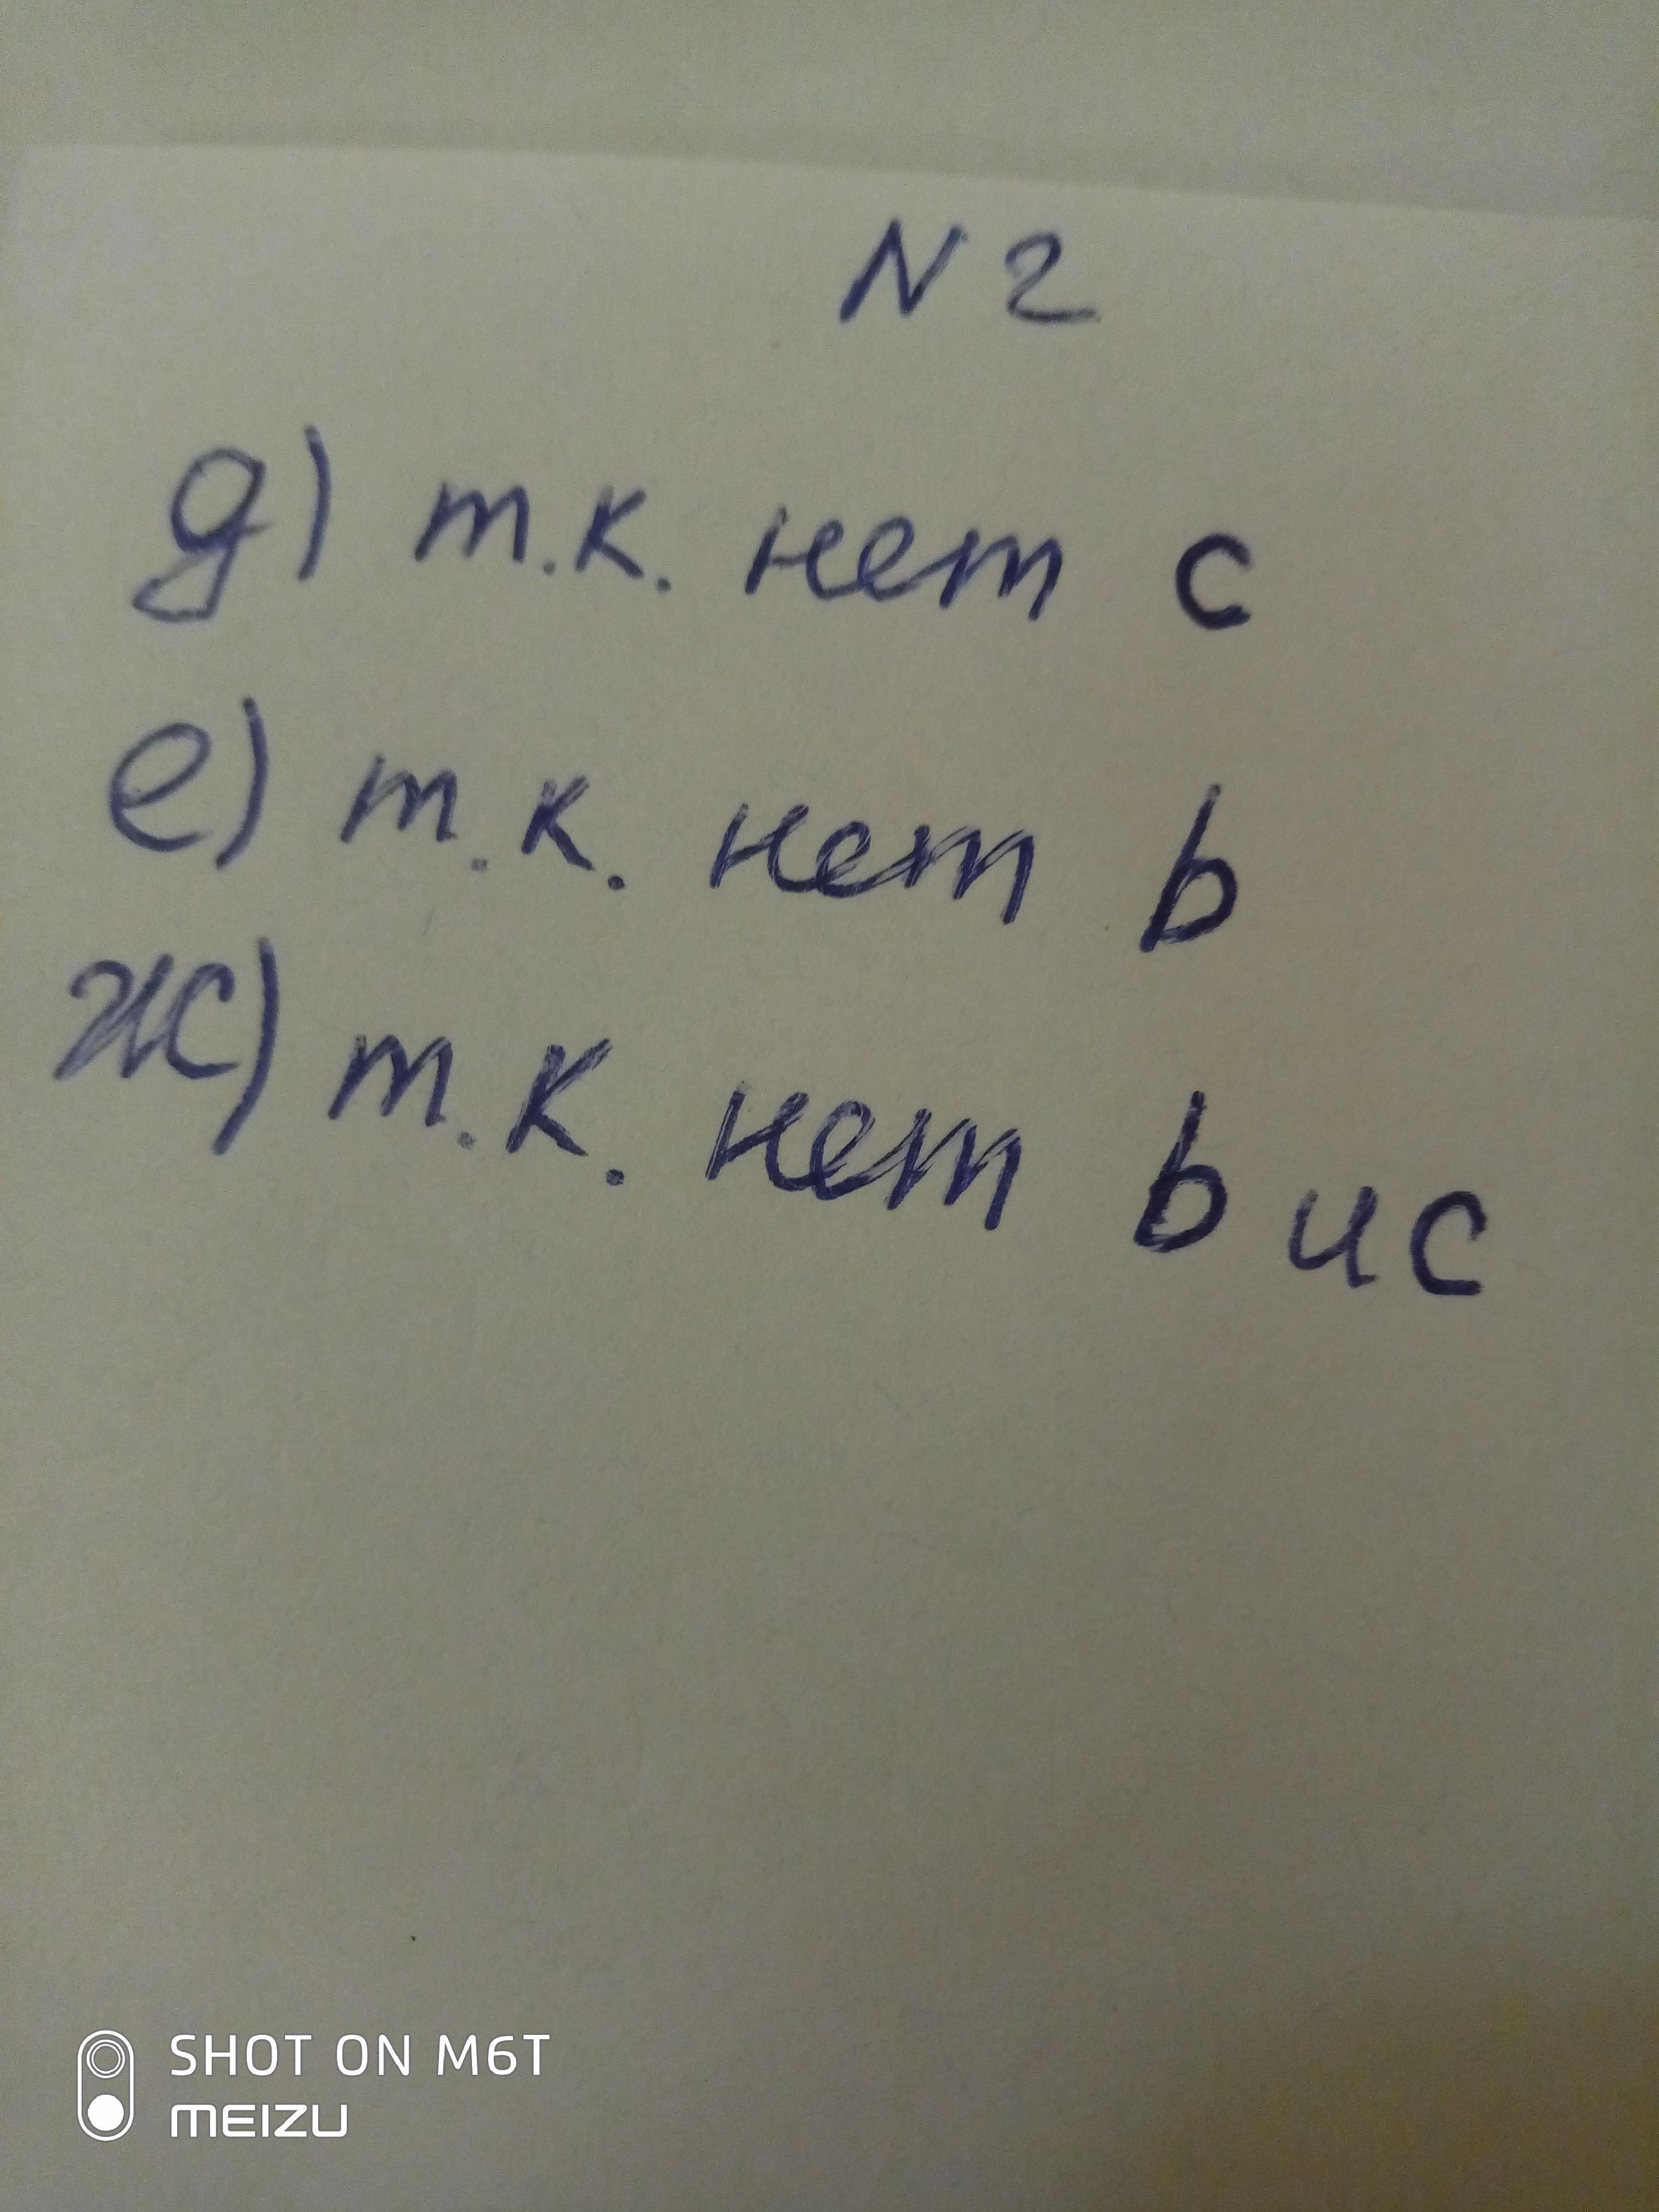 N 2
д) т.к. нет c
е) т.к. нет b
ж) т.к. нет b и c
SHOT ON M6T
MEIZU